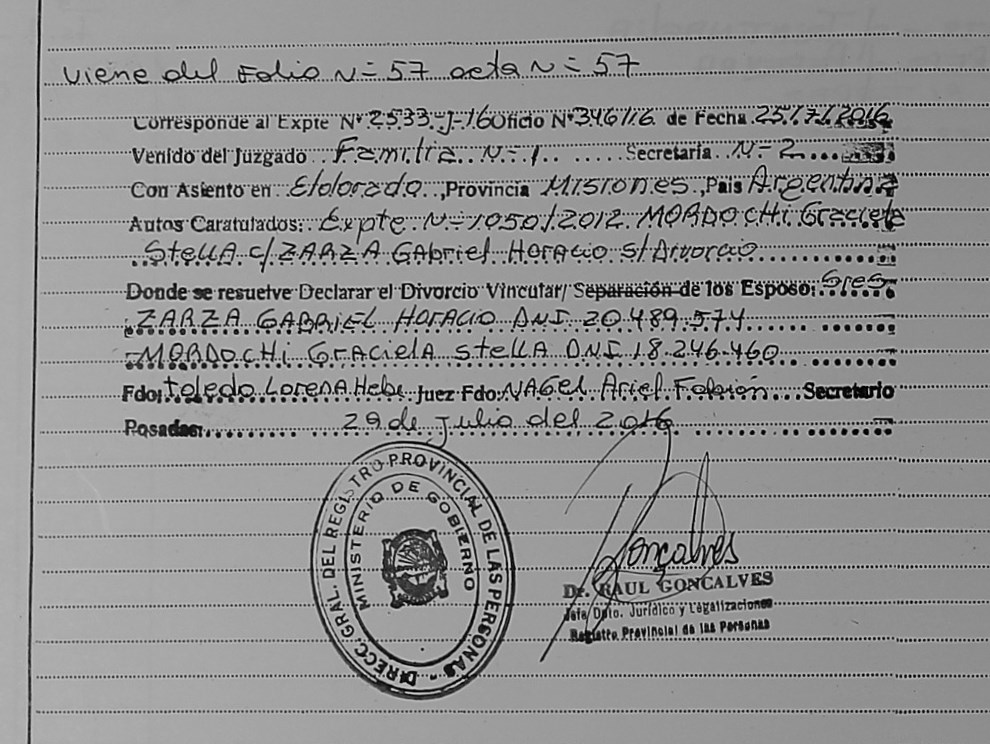 viene del Folio N= 57 acta N= 57
Corresponde al Expte Nº 2533-J-16 Oficio Nº 346/16 de Fecha 25/7/2016
Venido del Juzgado Familia N=1 Secretaria N=2
Con Asiento en Eldorado, Provincia Misiones, Pais Argentina
Autos Caratulados: Expte N=1050/2012 MORDOCHI Graciela
Stella c/ ZARZA GABriel HORAcio S/ Divorcio
Donde se resuelve Declarar el Divorcio Vincular/ Separación de los Esposo: Sres
ZARZA GABRIEL HORACIO DNI 20.489.574
MORDOCHI GRACIELA STELLA DNI 18.246.460
Fdo: toledo Lorena Hebe Juez Fdo: NAGEL Ariel Fabián Secretario
Posadas: 29 de Julio del 2016
DIRECC. GRAL. DEL REGISTRO PROVINCIAL DE LAS PERSONAS -
MINISTERIO DE GOBIERNO
Gonçalves
Dr. RAUL GONCALVES
Jefe Dpto. Jurídico y Legalizaciones
Registro Provincial de las Personas